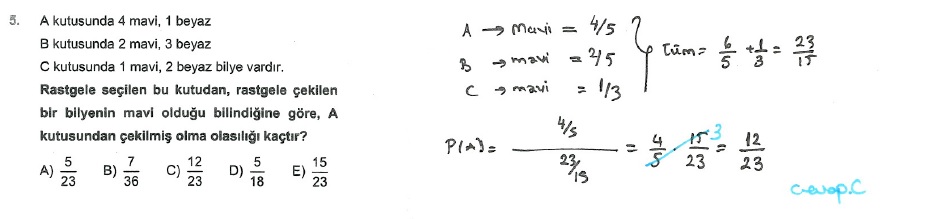 5. A kutusunda 4 mavi, 1 beyaz
B kutusunda 2 mavi, 3 beyaz
C kutusunda 1 mavi, 2 beyaz bilye vardır.
Rastgele seçilen bu kutudan, rastgele çekilen
bir bilyenin mavi olduğu bilindiğine göre, A
kutusundan çekilmiş olma olasılığı kaçtır?
A) 5/23 B) 7/36 C) 12/23 D) 5/18 E) 15/23
A → Mavi = 4/5
B → mavi = 2/5
C → mavi = 1/3
Tüm = 6/5 + 1/3 = 23/15
P(A) = (4/5)/(23/15) = 4/5 · 15/23 = 12/23
3
Cevap.C